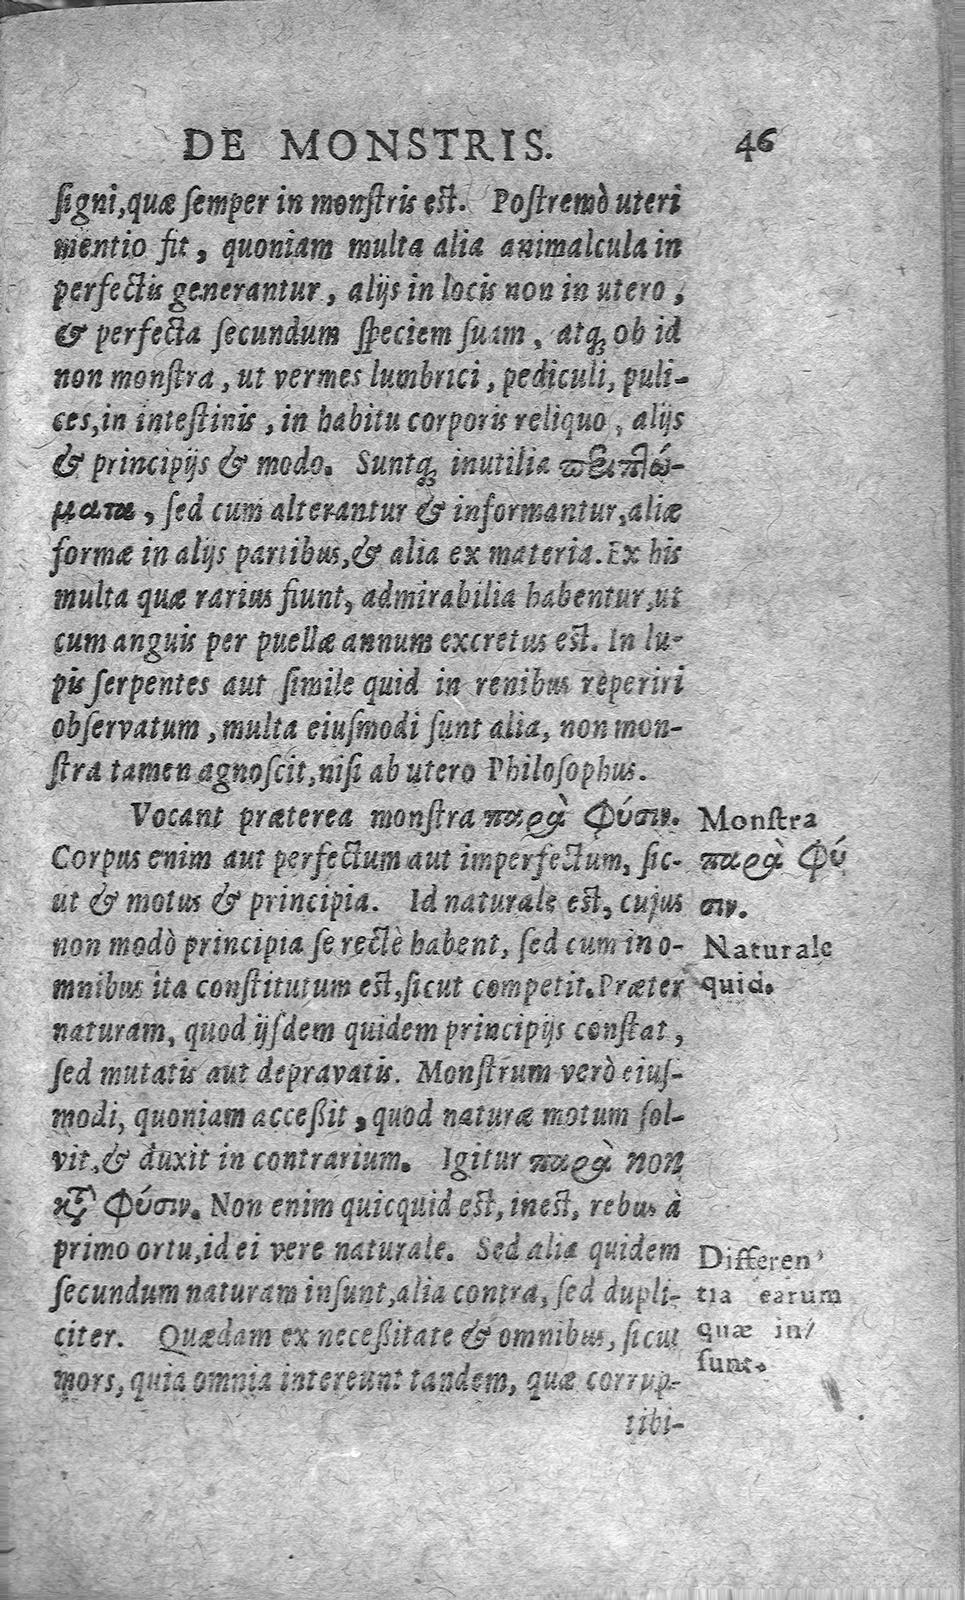 DE MONSTRIS. 46
ſigni, quæ ſemper in monſtris eſt. Poſtremò uteri
mentio fit, quoniam multa alia animalcula in
perfectis generantur, alijs in locis non in utero,
& perfecta ſecundum ſpeciem ſuam, atq; ob id
non monſtra, ut vermes lumbrici, pediculi, puli-
ces, in inteſtinis, in habitu corporis reliquo, alijs
& principijs & modo. Suntq; inutilia περιπλώ-
ματα, ſed cum alterantur & informantur, aliæ
formæ in alijs partibus, & alia ex materia. Ex his
multa quæ rarius fiunt, admirabilia habentur, ut
cum anguis per puellæ annum excretus eſt. In lu-
pis ſerpentes aut ſimile quid in renibus reperiri
obſervatum, multa eiuſmodi ſunt alia, non mon-
ſtra tamen agnoſcit, niſi ab utero Philoſophus.
Vocant præterea monſtra παρὰ φύσιν.
Corpus enim aut perfectum aut imperfectum, ſic-
ut & motus & principia. Id naturale eſt, cujus
non modò principia ſe rectè habent, ſed cum in o-
mnibus ita conſtitutum eſt, ſicut competit. Præter
naturam, quod ijſdem quidem principijs conſtat,
ſed mutatis aut depravatis. Monſtrum verò eiuſ-
modi, quoniam acceßit, quod naturæ motum ſol-
vit, & duxit in contrarium. Igitur παρὰ non
κτ̀ φύσιν. Non enim quicquid eſt, ineſt, rebus à
primo ortu, id ei vere naturale. Sed aliæ quidem
ſecundum naturam inſunt, alia contra, ſed dupli-
citer. Quædam ex neceßitate & omnibus, ſicut
mors, quia omnia intereunt tandem, quæ corrup-
tibi-
Monſtra
παρὰ φύ
σιν.
Naturale
quid.
Differen-
tia earum
quæ in-
ſunt.